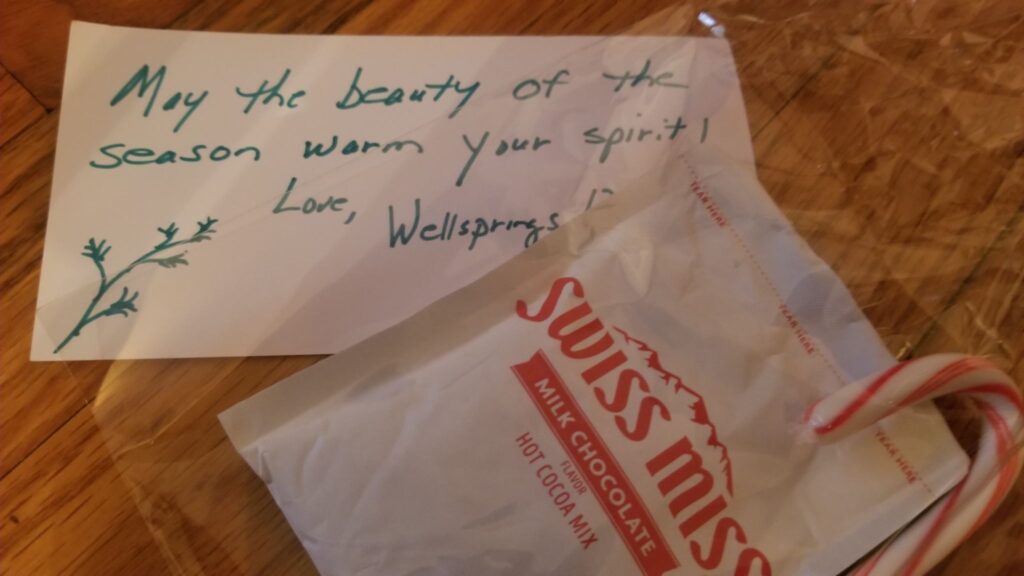 May the beauty of the
season warm your spirit!
Love, Wellsprings
TEAR HERE
TEAR HERE
TEAR HERE
SWISS MISS
MILK CHOCOLATE
FLAVOR
HOT COCOA MIX